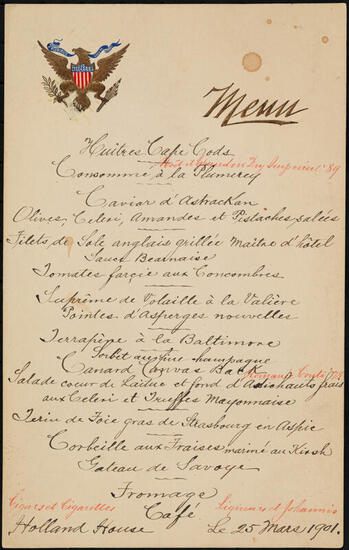 Menu
Huîtres Cape Cods
Moët et Chandon Dry Imperial '89
Consommé à la Plumerey
Caviar d'Astrackan
Olives, Celeri, Amandes et Pistaches salées
Filets de Sole anglais grillée Maître d'hôtel
Sauce Bearnaise
Tomates farcie aux Concombres
Suprême de Volaille à la Valière
Pointes d'Asperges nouvelles
Terrapène à la Baltimore
Sorbet au fine champagne
Canard Canvas Back
Romanée Conti
Salade coeur de Laitue et fond d'Artichauts frais
aux Celeri et Truffes Mayonnaise
Terin de Foie gras de Strasbourg en Aspic
Corbeille aux Fraises mariné au Kirsh
Gateau de Savoye
Fromage
Cigars et Cigarettes
Liqueurs et Johannis
Café
Holland House Le 25 Mars 1901.